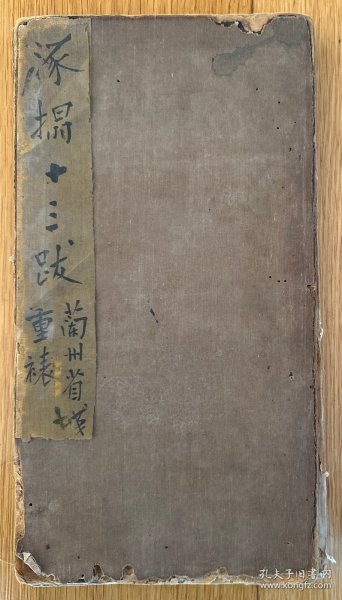 涿搨十三跋
蘭州省城
重裱
孔夫子旧书网
www.kongfz.com